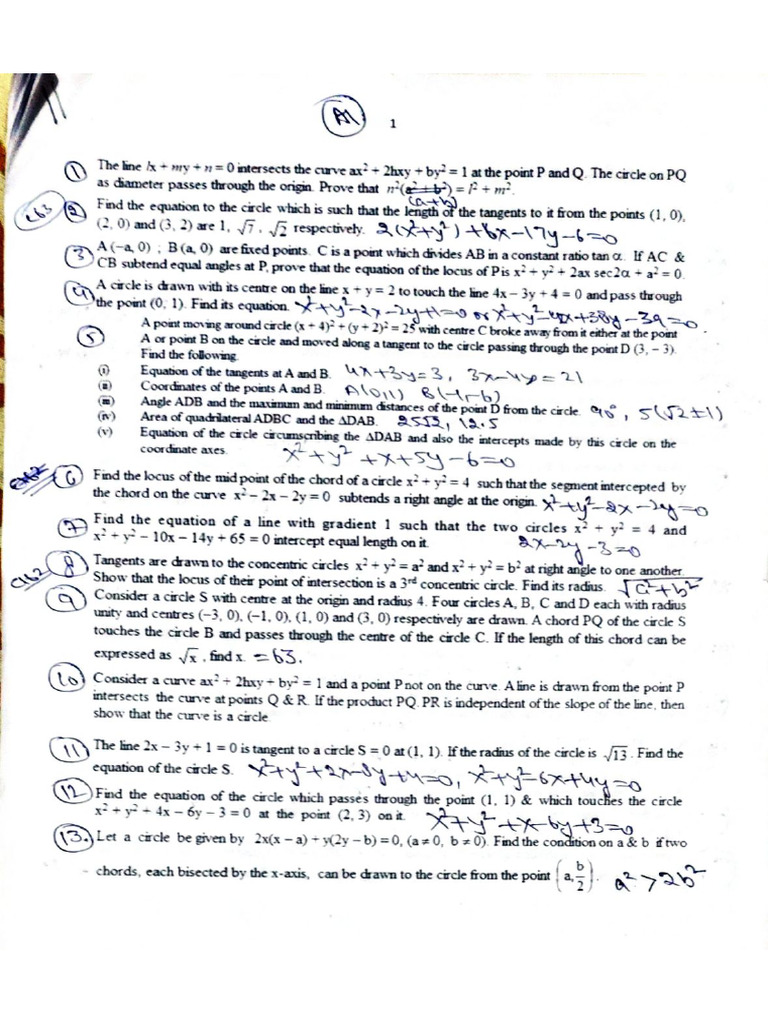 A1
1
① The line lx + my + n = 0 intersects the curve ax² + 2hxy + by² = 1 at the point P and Q. The circle on PQ
as diameter passes through the origin. Prove that n²(a² + b²) = l² + m².
(a+b)
C63 ② Find the equation to the circle which is such that the length of the tangents to it from the points (1, 0),
(2, 0) and (3, 2) are 1, √7, √2 respectively. 2(x²+y²)+6x-17y-6=0
③ A (−a, 0) ; B (a, 0) are fixed points. C is a point which divides AB in a constant ratio tan α. If AC &
CB subtend equal angles at P, prove that the equation of the locus of P is x² + y² + 2ax sec2α + a² = 0.
④ A circle is drawn with its centre on the line x + y = 2 to touch the line 4x − 3y + 4 = 0 and pass through
the point (0, 1). Find its equation. x²+y²-2x-2y+1=0 or x²+y²-42x+38y-39=0
⑤ A point moving around circle (x + 4)² + (y + 2)² = 25 with centre C broke away from it either at the point
A or point B on the circle and moved along a tangent to the circle passing through the point D (3, − 3).
Find the following.
(i) Equation of the tangents at A and B. 4x+3y=3, 3x-4y=21
(ii) Coordinates of the points A and B. A(0,1) B(-1,-6)
(iii) Angle ADB and the maximum and minimum distances of the point D from the circle. 90°, 5(√2±1)
(iv) Area of quadrilateral ADBC and the ΔDAB. 25, 12.5
(v) Equation of the circle circumscribing the ΔDAB and also the intercepts made by this circle on the
coordinate axes. x²+y²+x+5y-6=0
⑥ Find the locus of the mid point of the chord of a circle x² + y² = 4 such that the segment intercepted by
the chord on the curve x² − 2x − 2y = 0 subtends a right angle at the origin. x²+y²-2x-2y=0
⑦ Find the equation of a line with gradient 1 such that the two circles x² + y² = 4 and
x² + y² − 10x − 14y + 65 = 0 intercept equal length on it. 2x-2y-3=0
C162 ⑧ Tangents are drawn to the concentric circles x² + y² = a² and x² + y² = b² at right angle to one another.
Show that the locus of their point of intersection is a 3rd concentric circle. Find its radius. √a²+b²
⑨ Consider a circle S with centre at the origin and radius 4. Four circles A, B, C and D each with radius
unity and centres (−3, 0), (−1, 0), (1, 0) and (3, 0) respectively are drawn. A chord PQ of the circle S
touches the circle B and passes through the centre of the circle C. If the length of this chord can be
expressed as √x, find x. =63.
⑩ Consider a curve ax² + 2hxy + by² = 1 and a point P not on the curve. A line is drawn from the point P
intersects the curve at points Q & R. If the product PQ. PR is independent of the slope of the line, then
show that the curve is a circle.
⑪ The line 2x − 3y + 1 = 0 is tangent to a circle S = 0 at (1, 1). If the radius of the circle is √13. Find the
equation of the circle S. x²+y²+2x-8y+4=0, x²+y²-6x+4y=0
⑫ Find the equation of the circle which passes through the point (1, 1) & which touches the circle
x² + y² + 4x − 6y − 3 = 0 at the point (2, 3) on it. x²+y²+x-6y+3=0
⑬ Let a circle be given by 2x(x − a) + y(2y − b) = 0, (a ≠ 0, b ≠ 0). Find the condition on a & b if two
chords, each bisected by the x-axis, can be drawn to the circle from the point (a, b/2). a²>2b²